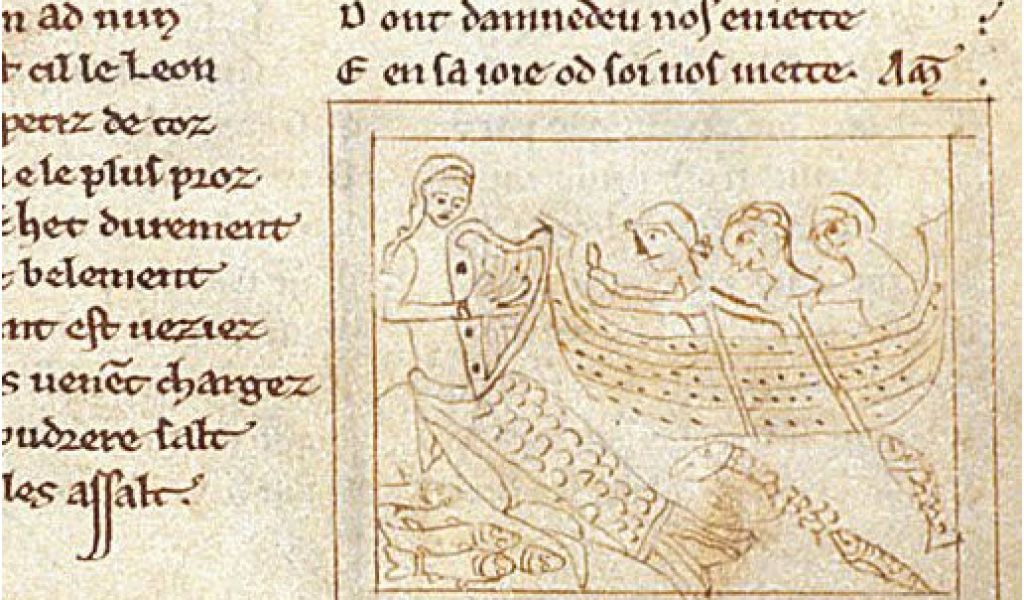 ad nun
cil le Leon
petiz de toz
e le pluſ proz.
het durement
belement
nt eſt ueziez
s uenēt chargez
oudrere ſalt
les aſſalt.
D ont damnedeu noſ eniette
E en ſa ioie od ſoi noſ mette. Am̄.